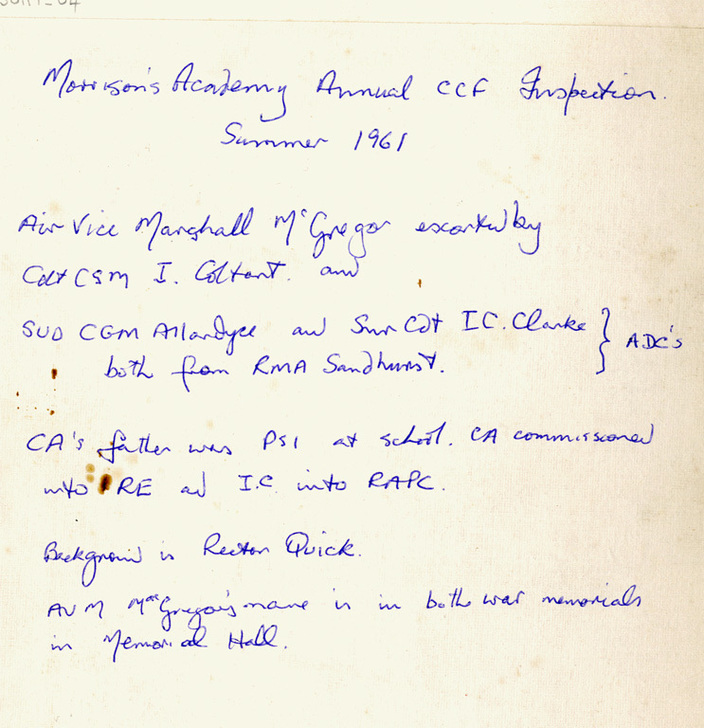 Morrison's Academy Annual CCF Inspection.
Summer 1961
Air Vice Marshall McGregor escorted by
Cdt CSM I. Coltart. and
SUO CGM Allardyce and Snr Cdt I.C. Clarke } ADC's
both from RMA Sandhurst.
CA's father was PSI at school. CA commissioned
into RE and I.C into RAPC.
Background is Rector Quick.
AVM MacGregor's name is in both war memorials
in Memorial Hall.